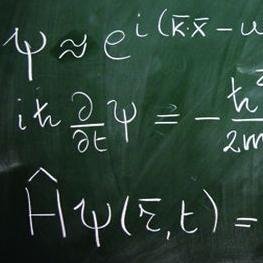 ψ ≈ e^{i(k̄·x̄ - ω
iħ ∂/∂t ψ = - ħ²/2m
Ĥψ(r̄,t) =